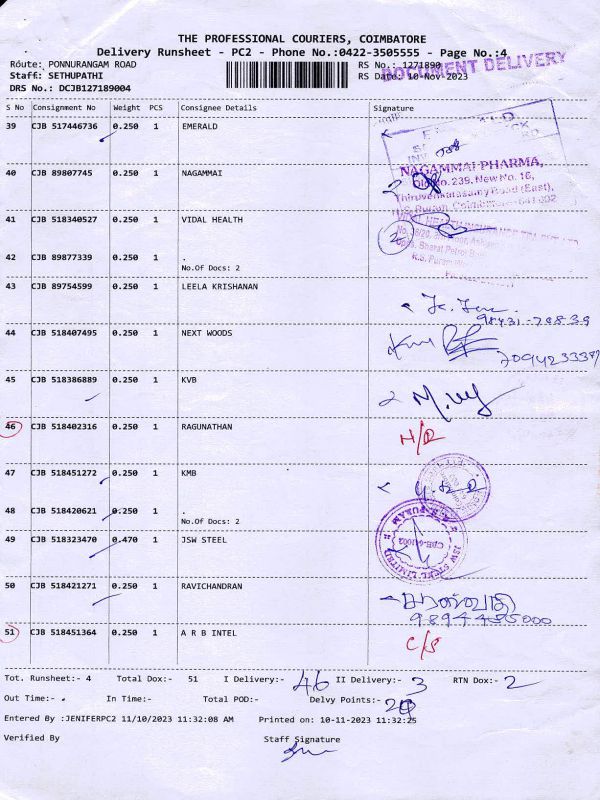 THE PROFESSIONAL COURIERS, COIMBATORE
Delivery Runsheet - PC2 - Phone No.:0422-3505555 - Page No.:4
Route: PONNURANGAM ROAD RS No.: 1271890
Staff: SETHUPATHI RS Date: 10-Nov-2023
DOCUMENT DELIVERY
DRS No.: DCJB127189004
S No Consignment No Weight PCS Consignee Details Signature
39 CJB 517446736 0.250 1 EMERALD
40 CJB 89807745 0.250 1 NAGAMMAI
NAGAMMAI PHARMA,
Old No. 239, New No. 16,
Thiruvenkatasamy Road (East),
41 CJB 518340527 0.250 1 VIDAL HEALTH 2
42 CJB 89877339 0.250 1 .
No.Of Docs: 2
43 CJB 89754599 0.250 1 LEELA KRISHANAN
44 CJB 518407495 0.250 1 NEXT WOODS
45 CJB 518386889 0.250 1 KVB
46 CJB 518402316 0.250 1 RAGUNATHAN
47 CJB 518451272 0.250 1 KMB
48 CJB 518420621 0.250 1 .
No.Of Docs: 2
49 CJB 518323470 0.470 1 JSW STEEL
JSW STEEL LIMITED
50 CJB 518421271 0.250 1 RAVICHANDRAN
51 CJB 518451364 0.250 1 A R B INTEL C/S
Tot. Runsheet:- 4 Total Dox:- 51 I Delivery:- 46 II Delivery:- 3 RTN Dox:- 2
Out Time:- . In Time:- Total POD:- Delvy Points:-
Entered By :JENIFERPC2 11/10/2023 11:32:08 AM Printed on: 10-11-2023 11:32:25
Verified By Staff Signature